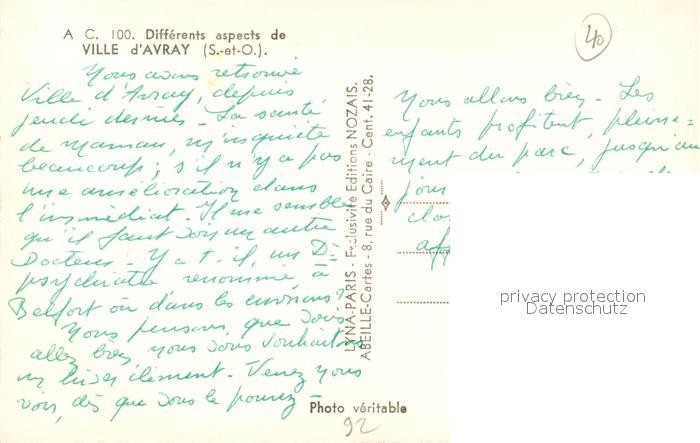 A C. 100. Différents aspects de
VILLE d'AVRAY (S.-et-O.).
40
Nous avons retrouvé
Ville d'Avray, depuis
jeudi dernier - La santé
de Maman, m'inquiète
beaucoup; s'il n'y a pas
une amélioration dans
l'immédiat - Il me semble
qu'il faut voir un autre
Docteur - Y a t. il, un Dr
psychiatre renommé, à
Belfort ou dans les environs?
Nous pensons, que vous
allez bien, nous vous souhaitons
un hiver clément - Venez nous
voir, dès que vous le pouvez -
LYNA-PARIS - Exclusivité Editions NOZAIS.
ABEILLE-Cartes - 8, rue du Caire - Cent. 41-28.
Nous allons bien - Les
enfants profitent, pleine-
ment du parc, jusqu'au
jour
privacy protection
Datenschutz
Photo véritable
92